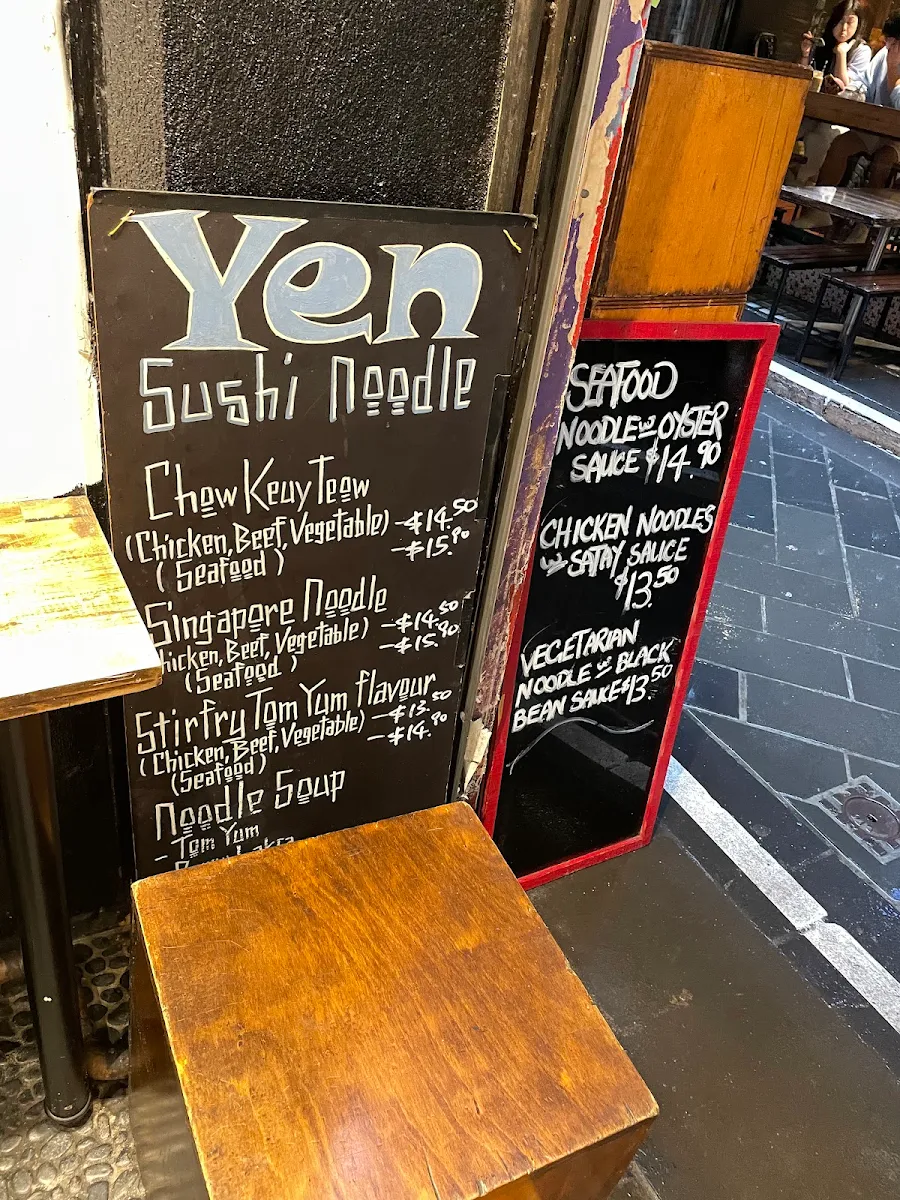 Yen
Sushi Noodle
Chow Keuy Teow
(Chicken, Beef, Vegetable) - $14.50
(Seafood) - $15.90
Singapore Noodle
hicken, Beef, Vegetable) - $14.50
(Seafood) - $15.90
Stirfry Tom Yum flavour
(Chicken, Beef, Vegetable) - $13.50
(Seafood) - $14.90
Noodle Soup
- Tom Yum
SEAFOOD
NOODLE W OYSTER
SAUCE $14.90
CHICKEN NOODLES
W SATAY SAUCE
$13.50
VEGETARIAN
NOODLE W BLACK
BEAN SAUCE $13.50